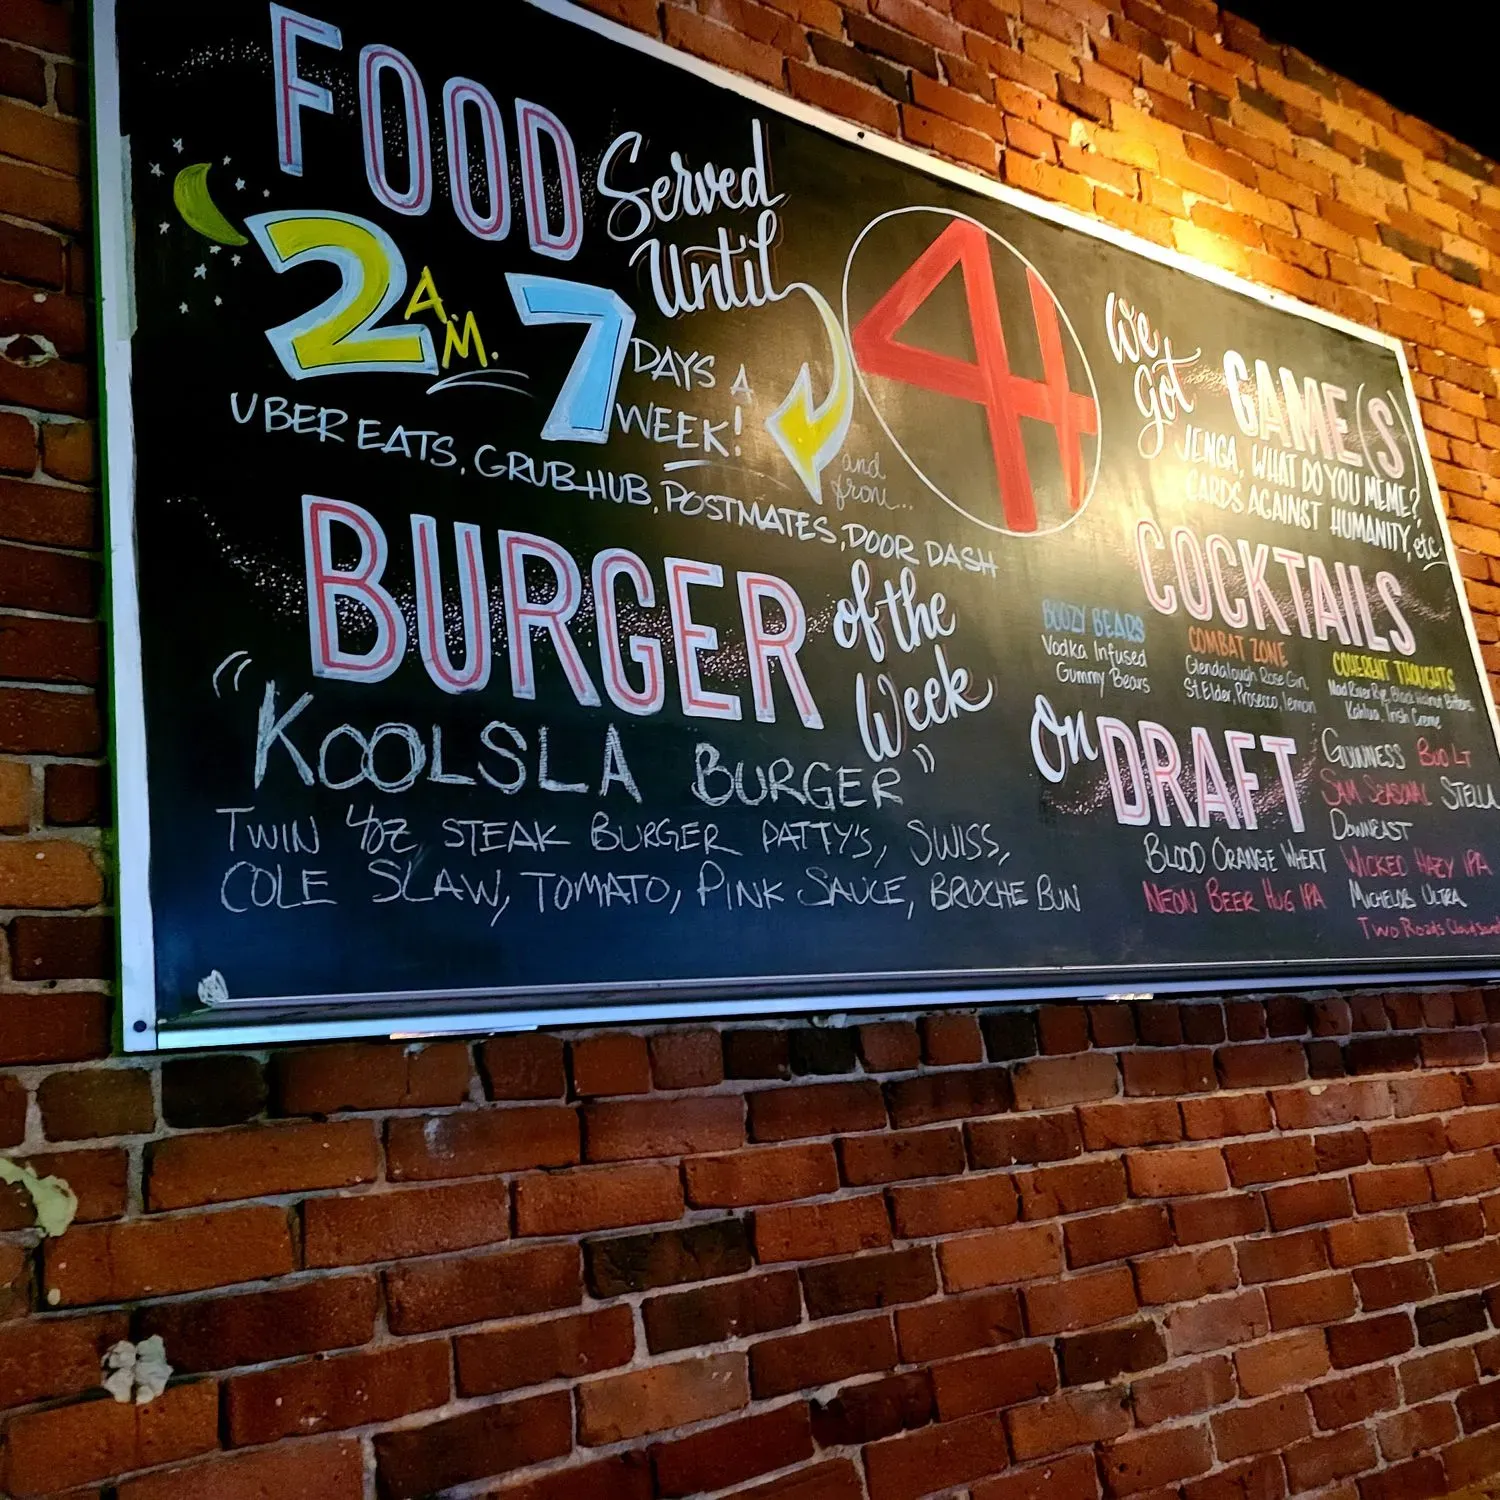 FOOD Served Until
2 A.M. 7 DAYS A WEEK!
UBER EATS, GRUBHUB, POSTMATES, DOOR DASH
and from...
BURGER of the Week
"KOOLSLA BURGER"
TWIN 4oz STEAK BURGER PATTY'S, SWISS,
COLE SLAW, TOMATO, PINK SAUCE, BRIOCHE BUN
We Got GAME(S)
JENGA, WHAT DO YOU MEME?,
CARDS AGAINST HUMANITY, etc
COCKTAILS
BOOZY BEARS
Vodka Infused
Gummy Bears
COMBAT ZONE
Glendalough Rose Gin,
St. Elder, Prosecco, lemon
COHERENT THOUGHTS
Mad River Rye, Black Walnut Bitters,
Kahlua, Irish Creme
On DRAFT
GUINNESS BUD LT
SAM SEASONAL STELLA
DOWNEAST
BLOOD ORANGE WHEAT
WICKED HAZY IPA
NEON BEER HUG IPA
MICHELOB ULTRA
TWO ROADS